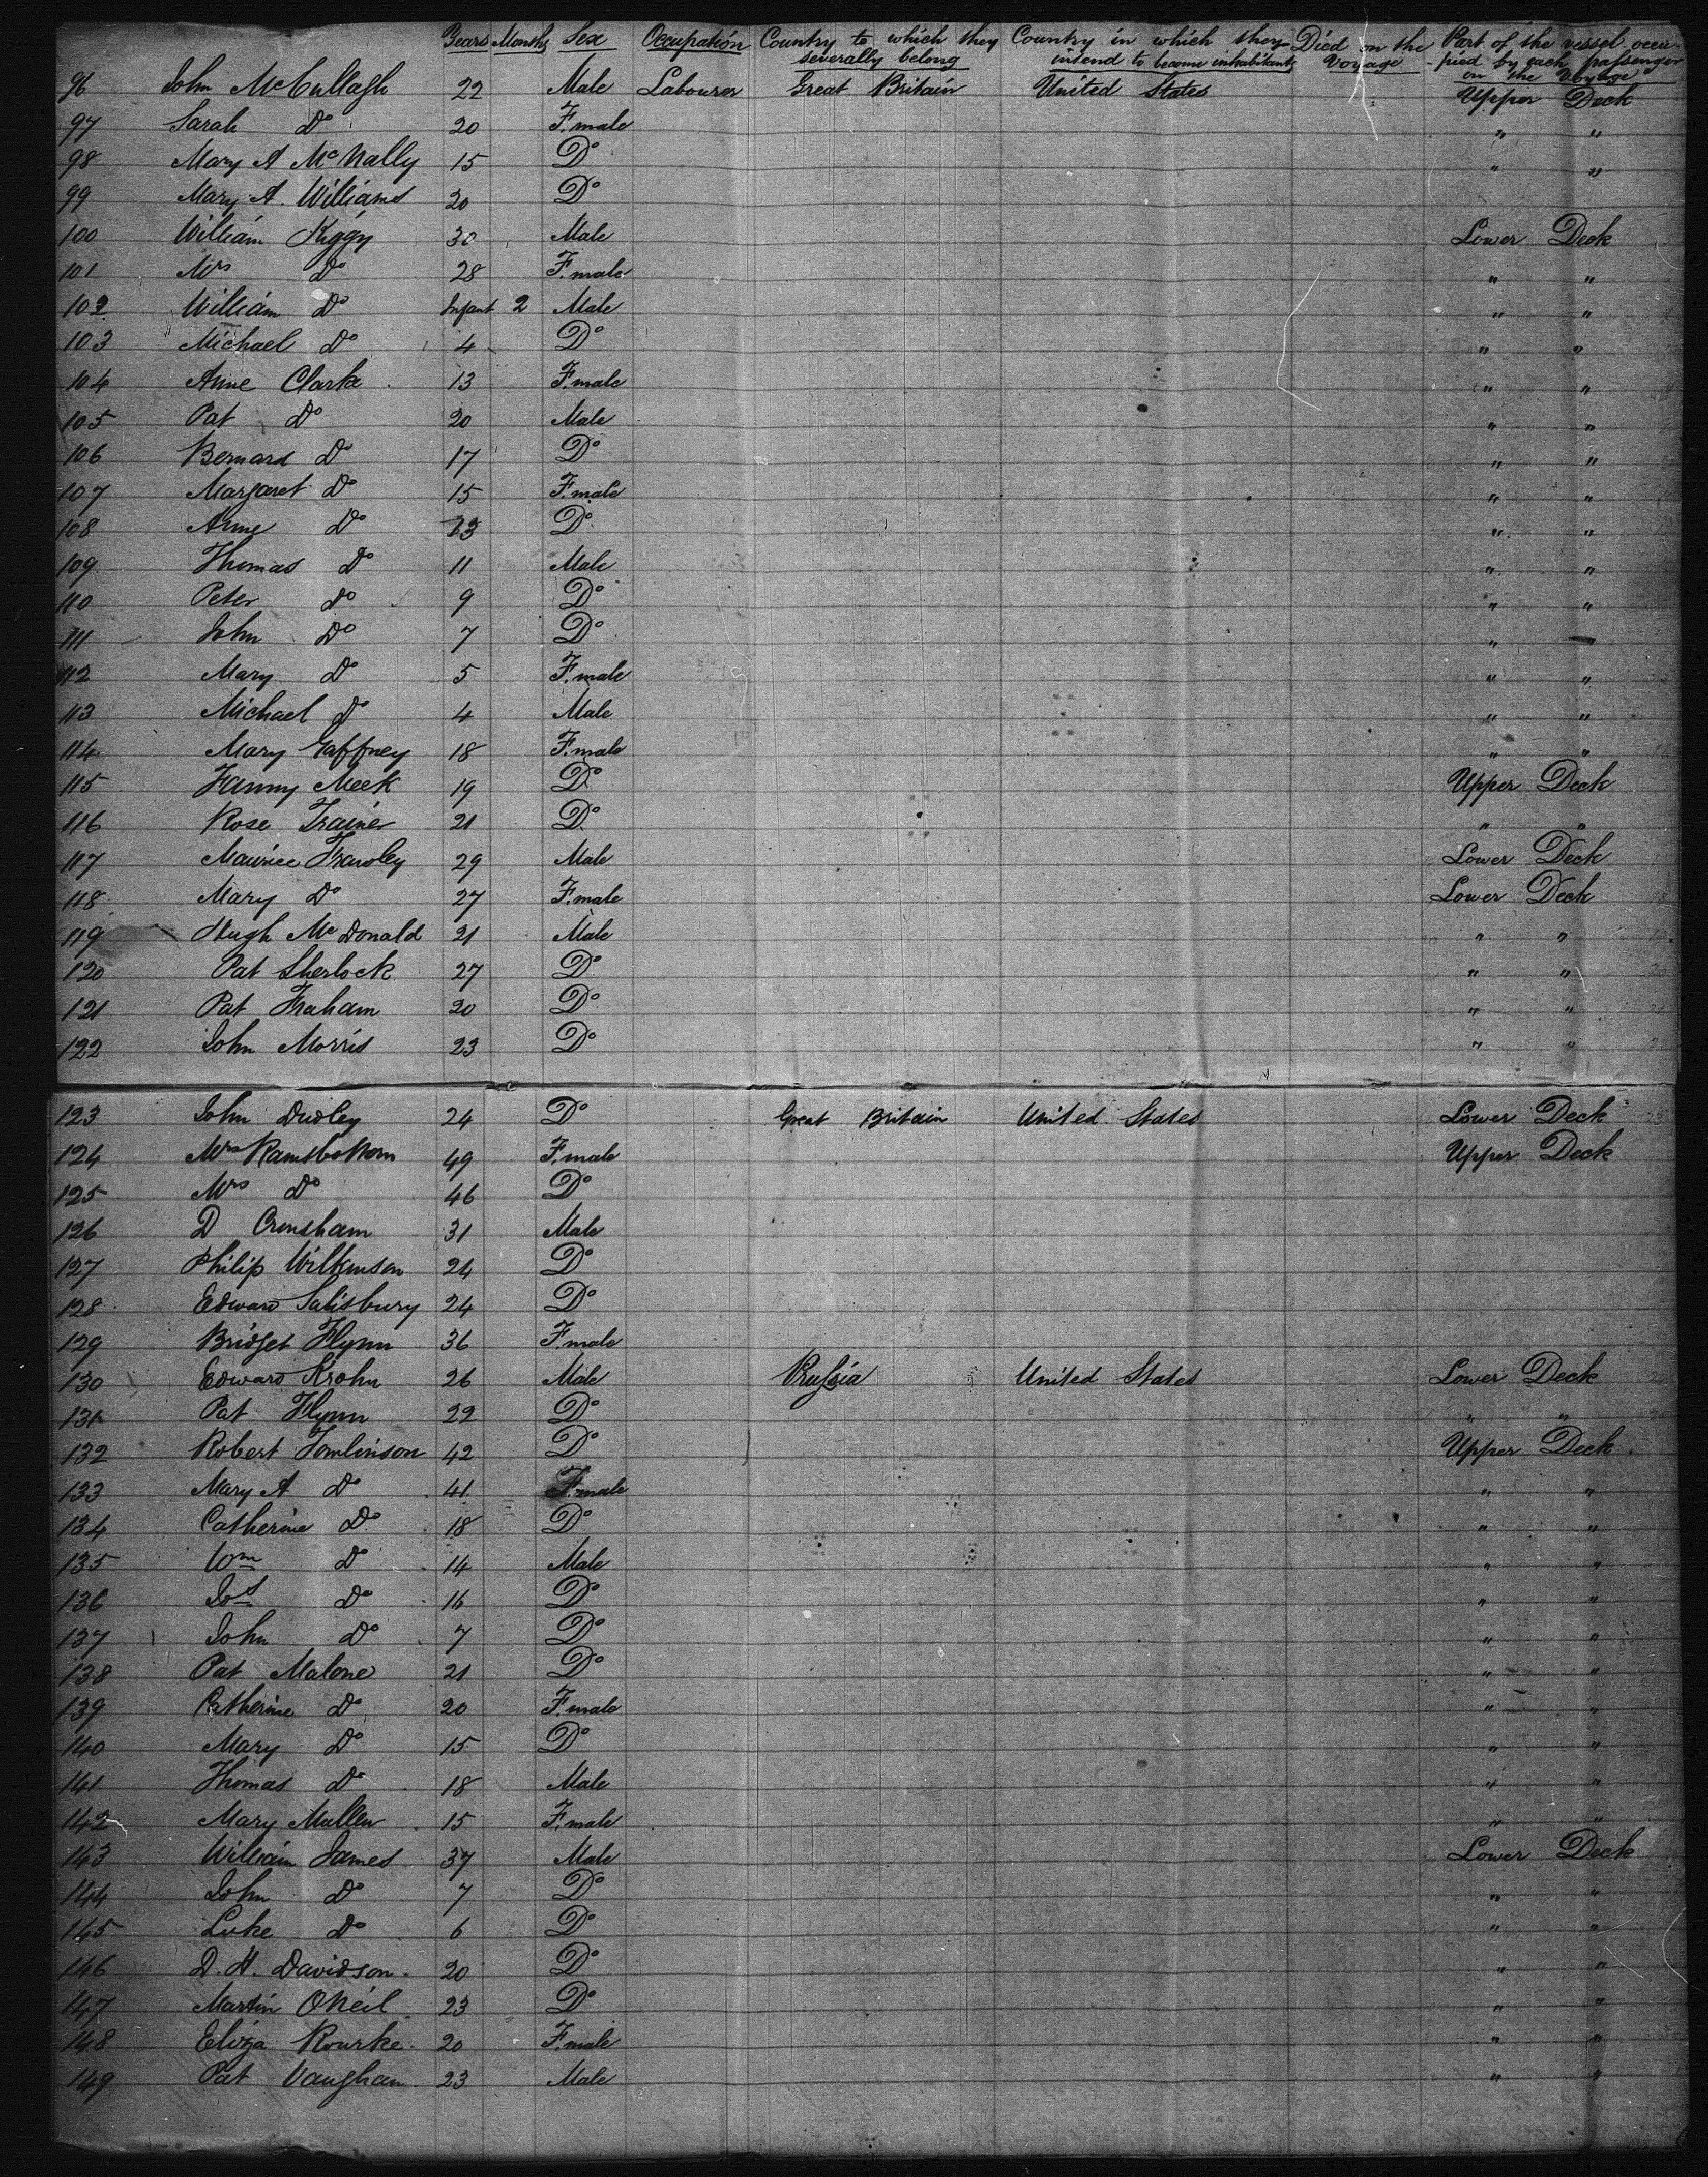 Years Months Sex Occupation Country to which they severally belong Country in which they intend to become inhabitants Died on the Voyage Part of the vessel occupied by each passenger on the Voyage
96 John McCullagh 22 Male Labourer Great Britain United States Upper Deck
97 Sarah Do 20 F.male " "
98 Mary A McNally 15 Do " "
99 Mary A. Williams 20 Do
100 William Kiggy 30 Male Lower Deck
101 Mrs Do 28 F.male " "
102 William Do Infant 2 Male " "
103 Michael Do 4 Do " "
104 Anne Clark 13 F.male " "
105 Pat Do 20 Male " "
106 Bernard Do 17 Do " "
107 Margaret Do 15 F.male " "
108 Anne Do 13 Do " "
109 Thomas Do 11 Male " "
110 Peter Do 9 Do " "
111 John Do 7 Do " "
112 Mary Do 5 F.male " "
113 Michael Do 4 Male " "
114 Mary Gaffney 18 F.male " "
115 Fanny Meek 19 Do Upper Deck
116 Rose Trainer 21 Do " "
117 Maurice 29 Male Lower Deck
118 Mary Do 27 F.male Lower Deck
119 Hugh McDonald 21 Male " "
120 Pat Sherlock 27 Do " "
121 Pat Graham 20 Do " "
122 John Morris 23 Do " "
123 John Dudley 24 Do Great Britain United States Lower Deck
124 Mrs Ramsbottom 49 F.male Upper Deck
125 Mrs Do 46 Do
126 D Crensham 31 Male
127 Philip Wilkinson 24 Do
128 Edward Salisbury 24 Do
129 Bridget Flynn 36 F.male
130 Edward Krohn 26 Male Russia United States Lower Deck
131 Pat Flynn 22 Do " "
132 Robert Tomlinson 42 Do Upper Deck
133 Mary A Do 41 F.male " "
134 Catherine Do 18 Do " "
135 Wm Do 14 Male " "
136 Jos Do 16 Do " "
137 John Do 7 Do " "
138 Pat Malone 21 Do " "
139 Catherine Do 20 F.male " "
140 Mary Do 15 Do " "
141 Thomas Do 18 Male " "
142 Mary Mullen 15 F.male " "
143 William James 37 Male Lower Deck
144 John Do 7 Do " "
145 Luke Do 6 Do " "
146 D. H. Davidson 20 Do " "
147 Martin ONeil 23 Do " "
148 Eliza Rourke 20 F.male " "
149 Pat Vaughan 23 Male " "